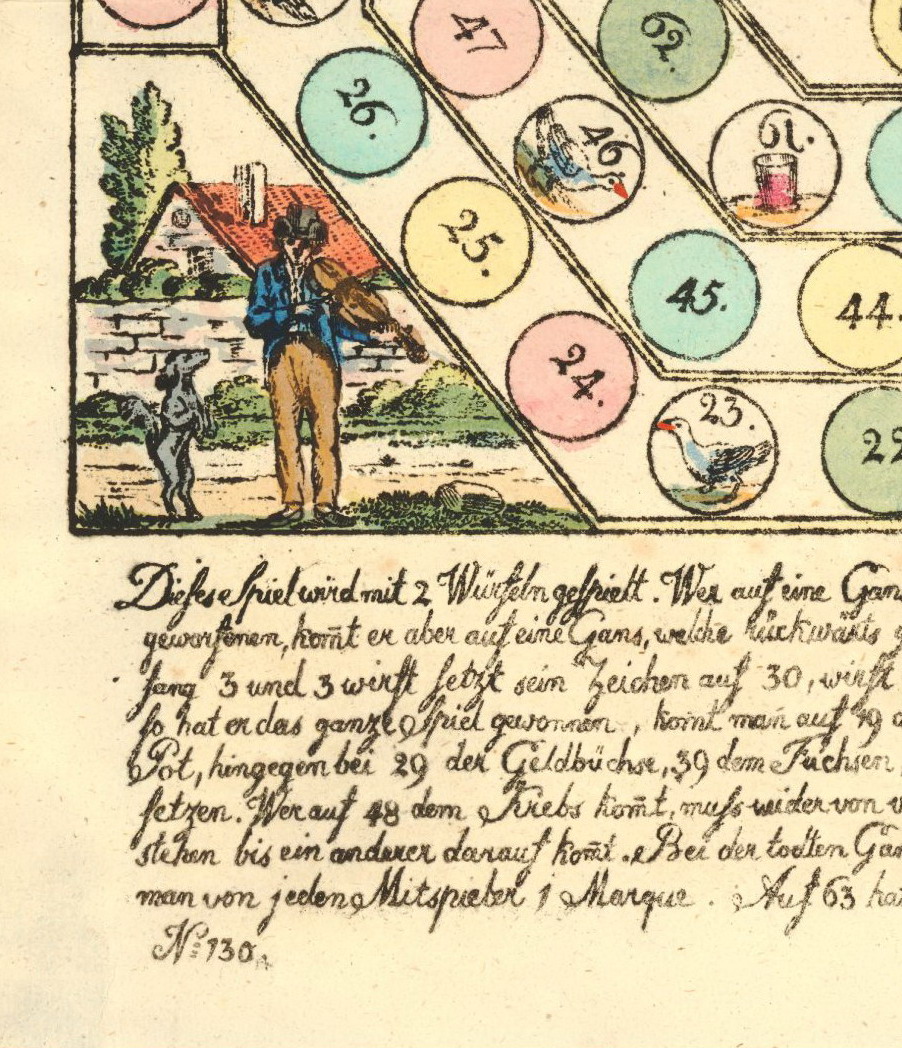 47
62.
26.
46
61.
25.
45.
44.
24.
23.
22
Dieses Spiel wird mit 2 Würfeln gespielt. Wer auf eine Gan
geworfenen, kom̄t er aber auf eine Gans, welche rückwärts g
fang 3 und 3 wirft setzt sein Zeichen auf 30, wirft
so hat er das ganze Spiel gewonnen, komt man auf 19 d
Pot, hingegen bei 29 der Geldbüchse, 39 dem Fuchsen
setzen. Wer auf 48 dem Krebs kom̄t, muss wider von v
stehen bis ein anderer darauf kom̄t. Bei der todten Gan
man von jeden Mitspieber 1 Marque. Auf 63 hat
No: 130.